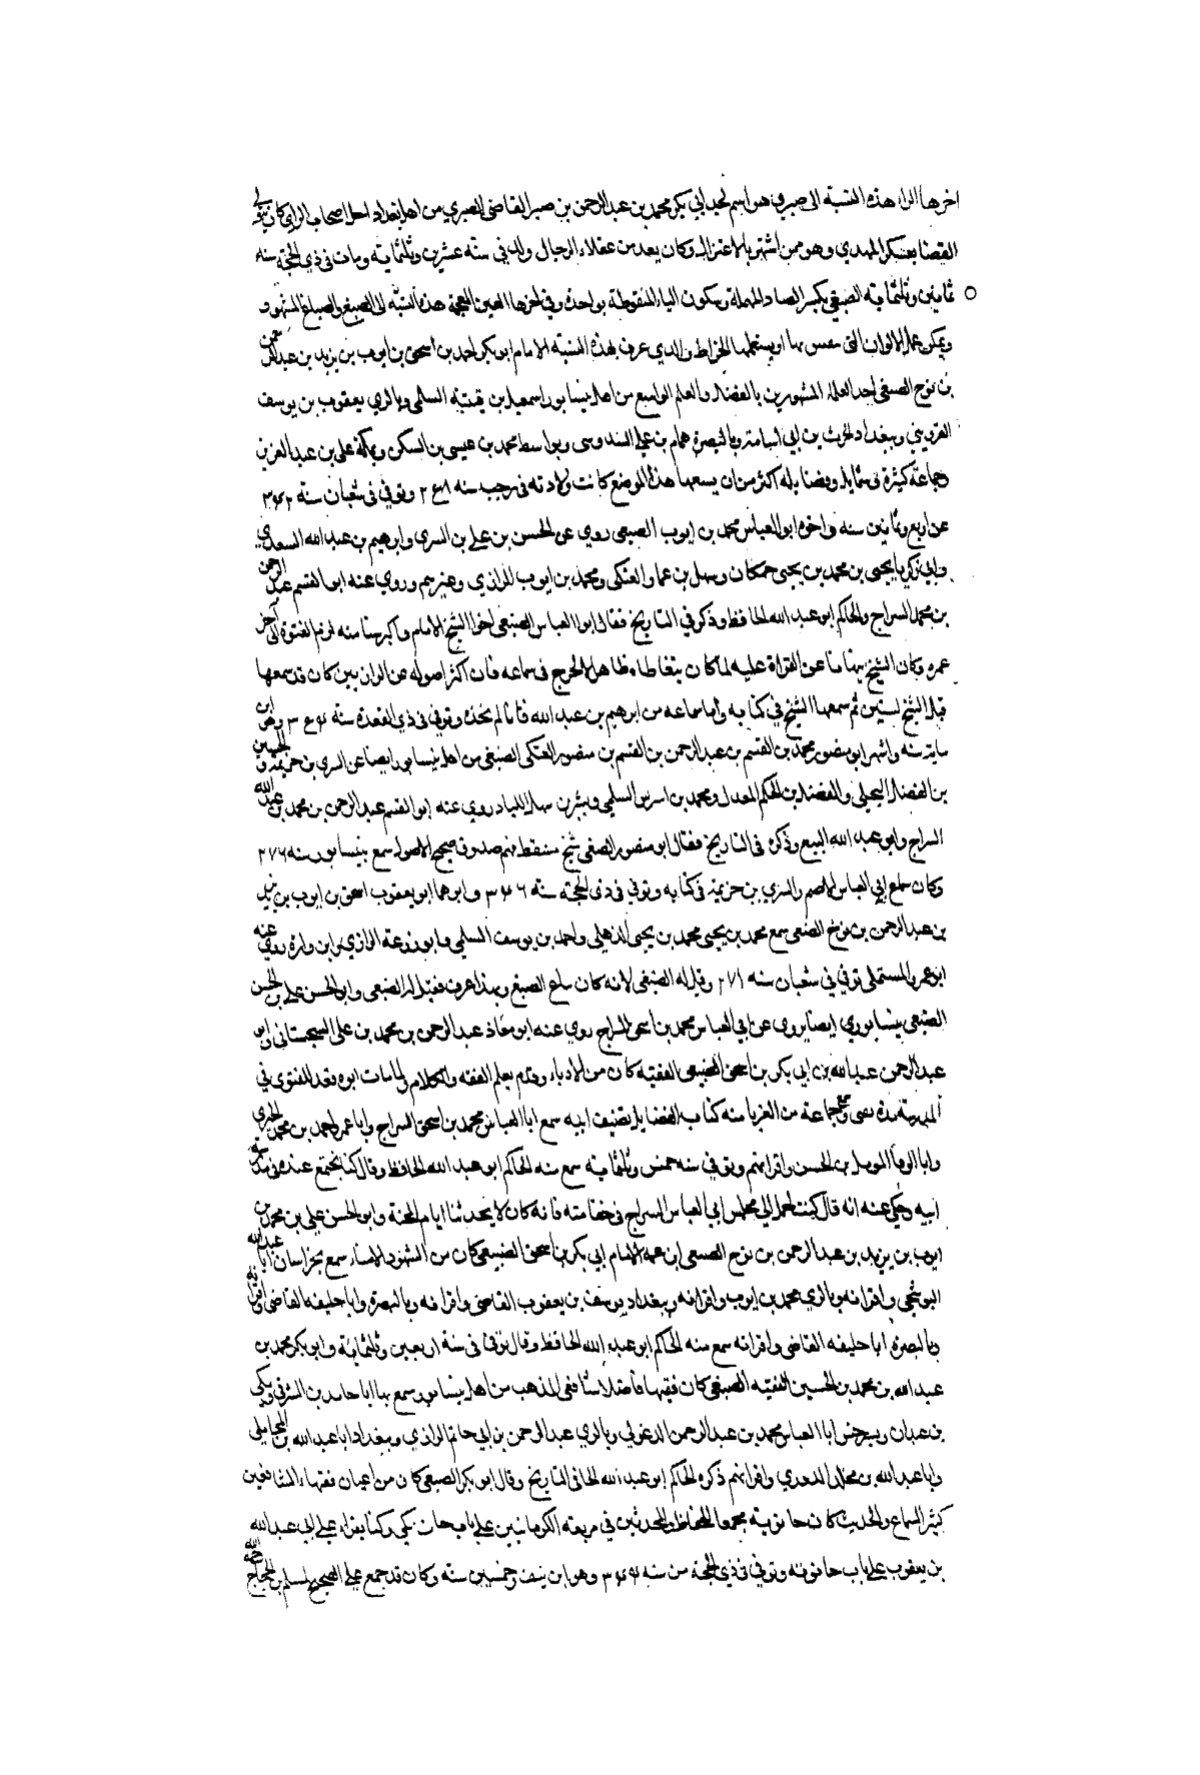 اخرها الراء هذه النسبة الى صبر وهو اسم لجد ابي بكر محمد بن عبد الرحمن بن صبر القاضي الصبري من اهل بغداد احد اصحاب الراي كان يتولى
القضا بعسكر المهدي وهو ممن اشتهر بالاعتزال وكان يعد من عقلاء الرجال ولد في سنة عشرين وثلثماية ومات في ذي الحجة سنه
ثمانين وثلثمايه الصبغي بكسر الصاد المهملة وسكون الباء المنقوطة بواحدة وفي اخرها الغين المعجمة هذه النسبة الى الصبغ والصباغ المشهور و
ويمكن عمل الالوان التى بها او يستعملها الخراط والذي عرف بهذه النسبة الامام ابو بكر احمد بن اسحق بن ايوب بن يزيد بن عبد الرحمن
بن نوح الصبغي احد العلماء المشهورين بالفضل والعلم الواسع من اهل نيسابور اسمعيل بن قتيبة السلمي وبالري يعقوب بن يوسف
القزويني وببغداد الحرث بن ابي اسامة وبالبصرة هشام بن علي السدوسي وبواسط محمد بن عيسى بن السكن وبمكة علي بن عبد العزيز
وجماعة كثيرة وفضايله اكثر من ان يسعها هذا الموضع كانت ولادته في رجب سنه وتوفي في شعبان سنة ٣٤٢
عن اربع وثمانين سنه واخوه ابو العباس محمد بن ايوب الصبغي روي عن الحسن بن علي بن السري وابرهيم بن عبد الله السعدي
وابي زكريا يحيى بن محمد بن يحيى حمكان وسهل بن عمار العتكي ومحمد بن ايوب الرازي وغيرهم وروي عنه ابو القسم عبد الرحمن
بن محمد السراج والحاكم ابو عبد الله الحافظ وذكره في التاريخ فقال ابو العباس الصبغي اخو الشيخ الامام واكبر سنا منه لزم الفتوة الى آخر
عمره وكان الشيخ ينهانا عن القراة عليه لما كان يتعاطاه ظاهرا لا لحرج في سماعه فان اكثر اصوله عن الرازيين كان قد سمعها
قبل الشيخ لسنتين ثم سمعها الشيخ في كتابه واما سماعه من ابرهيم بن عبد الله فانا لم نجده وتوفي في ذي القعدة سنة وهو ابن
ماية سنه واشهر ابو منصور محمد بن القسم بن عبد الرحمن بن القسم بن منصور العتكي الصبغي من اهل نيسابور ايضا عن السري بن خزيمة والحسين
بن الفضل البجلي والفضل بن الحكم المعدل ومحمد بن اشرس السلمي وبشر بن سهل اللباد روي عنه ابو القسم عبد الرحمن بن محمد بن عبد الله
السراج وابو عبد الله البيع وذكره في التاريخ فقال ابو منصور الصبغي شيخ متيقظ فهم صدوق صحيح الاصول سمع بنيسابور سنه ٢٧٦
وكان سماع ابي العباس الاصم والسري بن خزيمة في كتابه وتوفي في ذي الحجة سنة ٣٤٦ وابوهما ابو يعقوب اسحق بن ايوب بن يزيد
بن عبد الرحمن بن نوح الصبغي سمع محمد بن يحيى محمد بن يحيى الذهلي واحمد بن يوسف السلمي وابو زرعة الرازي وابن واره روي عنه
ابو عمرو المستملي توفي في شعبان سنه ٢٧١ وقيل له الصبغي لانه كان يبيع الصبغ وبهذا عرف فقيل له الصبغي وابو الحسن علي بن الحسن
الصبغي نيسابوري ايضا يروي عن ابي العباس محمد بن اسحق السراج روي عنه ابو معاذ عبد الرحمن بن محمد بن علي السجستاني وابو
عبد الرحمن عبد الله بن ابي بكر بن اسحق الصبغي الفقيه كان من الادباء وتقدم بعلم الفقه والكلام ولما مات ابوه وقعد للفتوى في
المدرسة مدة وجماعة من الغربا منه كتاب الفضايل تصنيف ابيه سمع ابا العباس محمد بن اسحق السراج وابا عمرو احمد بن محمد الحيري
وابا الوفا المومل بن الحسن واقرانهم وتوفي في سنه خمس وثلثماية سمع منه الحاكم ابو عبد الله الحافظ وقال كنا نجتمع عنده في مدرسة
ابيه وحكي عنه انه قال كنت احمل الي مجلس ابي العباس السراج في خفا منه فانه كان لا يحدثنا ايام المحنة وابو الحسن علي بن محمد بن
ايوب بن يزيد بن عبد الرحمن بن نوح الصبغي ابن عم الامام ابي بكر بن اسحق الصبغي كان من الشهود الامناء سمع بخراسان ابا عبد الله
البوشنجي واقرانه وبالري محمد بن ايوب واقرانه وببغداد يوسف بن يعقوب القاضي واقرانه وبالبصرة وابا خليفه القاضي واقرانه
وبالبصرة ابا خليفه القاضي واقرانه سمع منه الحاكم ابو عبد الله الحافظ وقال توفي في سنة اربعين وثلثماية وابو بكر محمد بن
عبد الله بن محمد بن الحسين الفقيه الصبغي كان فقيها فاضلا شافعي المذهب من اهل نيسابور سمع بها ابا حامد بن الشرقي ومكي
بن عبدان وبسرخس ابا العباس محمد بن عبد الرحمن الدغولي وبالري عبد الرحمن بن ابي حاتم الرازي وببغداد ابا عبد الله بن المحاملي
وابا عبد الله بن مخلد الدوري واقرانهم ذكره الحاكم ابو عبد الله الحافي التاريخ وقال ابو بكر الصبغي كان من اعيان فقهاء الشافعيين
كثير السماع والحديث كان حانوتة مجمعا للحفاظ والمحدثين في مربعه الكرمانيين علي باب خان مكي وكنا يقراء علي ابي عبد الله
بن يعقوب علي باب حانوته وتوفي في ذي الحجة من سنه وهو ابن نيف وخمسين سنة وكان قد جمع علي الصحيح لمسلم بن الحجاج رحمه الله